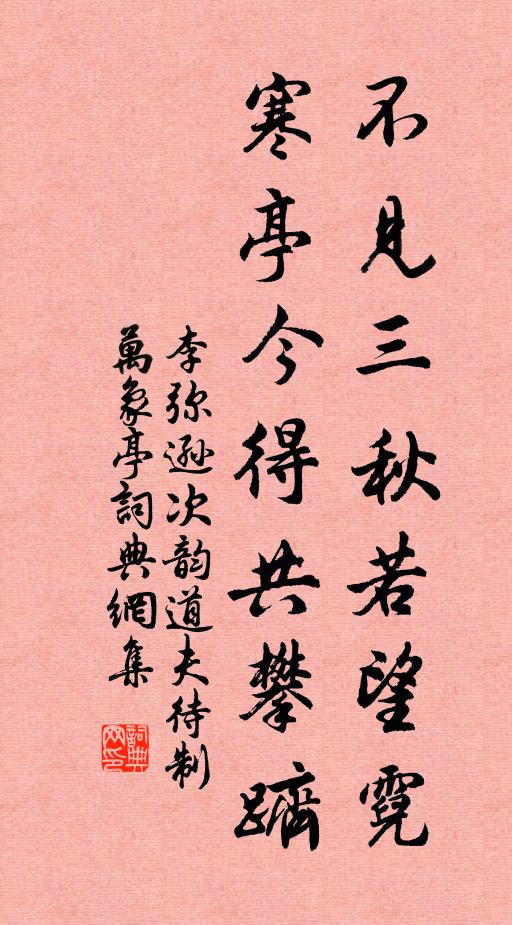 不見三秋若望霓
寒亭今得共攀躋
李弥遜次韵道夫待制
萬象亭詞典網集
詞典網印